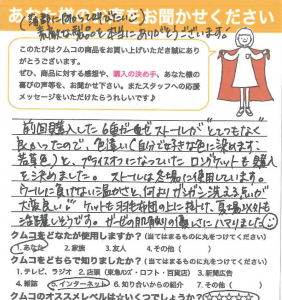 あなた様の声をお聞かせください
(蒲郡に向かって叫びたい〇)
素敵な製品を本当にありがとうございます。
このたびはクムコの商品をお買い上げいただき誠にあり
がとうございます。
ぜひ、商品に対する感想や、購入の決め手、あなた様の
喜びの声等を、お聞かせ下さい。またスタッフへの応援
メッセージをいただけたらうれしいです♪
前回購入した6重ガーゼストールが"とてつもなく"
良かったので、色違い(自分で好きな色に染めます。
若草色)と、プライスオフになっていたロングケットも購入
を決めました。ストールは冬場に使用しています。
ウールに負けない温かさと、何よりガンガン洗える点が
大変良い。ケットも羽毛布団の上に掛けて、夏場以外も
活躍しそうです。ガーゼの肌触りの優しさにハマりました
クムコをどなたが使用しますか?(当てはまるものに丸をつけてください)
1. あなた 2. 家族 3. 友人 4. その他( )
クムコをどちらで知りましたか?(当てはまるものに丸をつけてください)
1. テレビ、ラジオ 2. 店頭(東急ハンズ・ロフト・百貨店) 3. 新聞広告
4. 雑誌 5. インターネット 6. 知り合いからの紹介 7. その他( )
クムコのオススメレベルは☆いくつでしょうか?☆☆☆☆☆